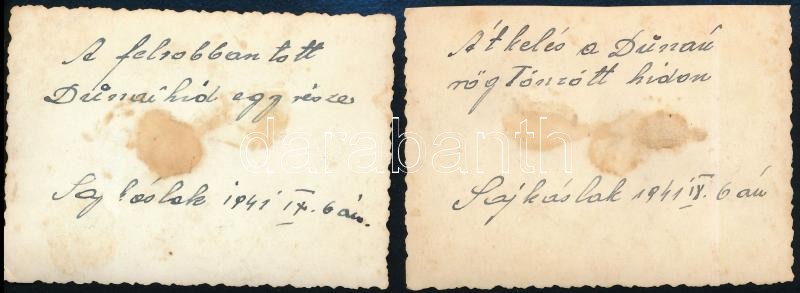 A felrobbantott
Dŭnai hid egy része
Sajkáslak 1941 IX. 6 án.
Átkelés a Dŭnaŭ
rögtönzött hidon
Sajkáslak 1941 IX. 6 án
darabanth